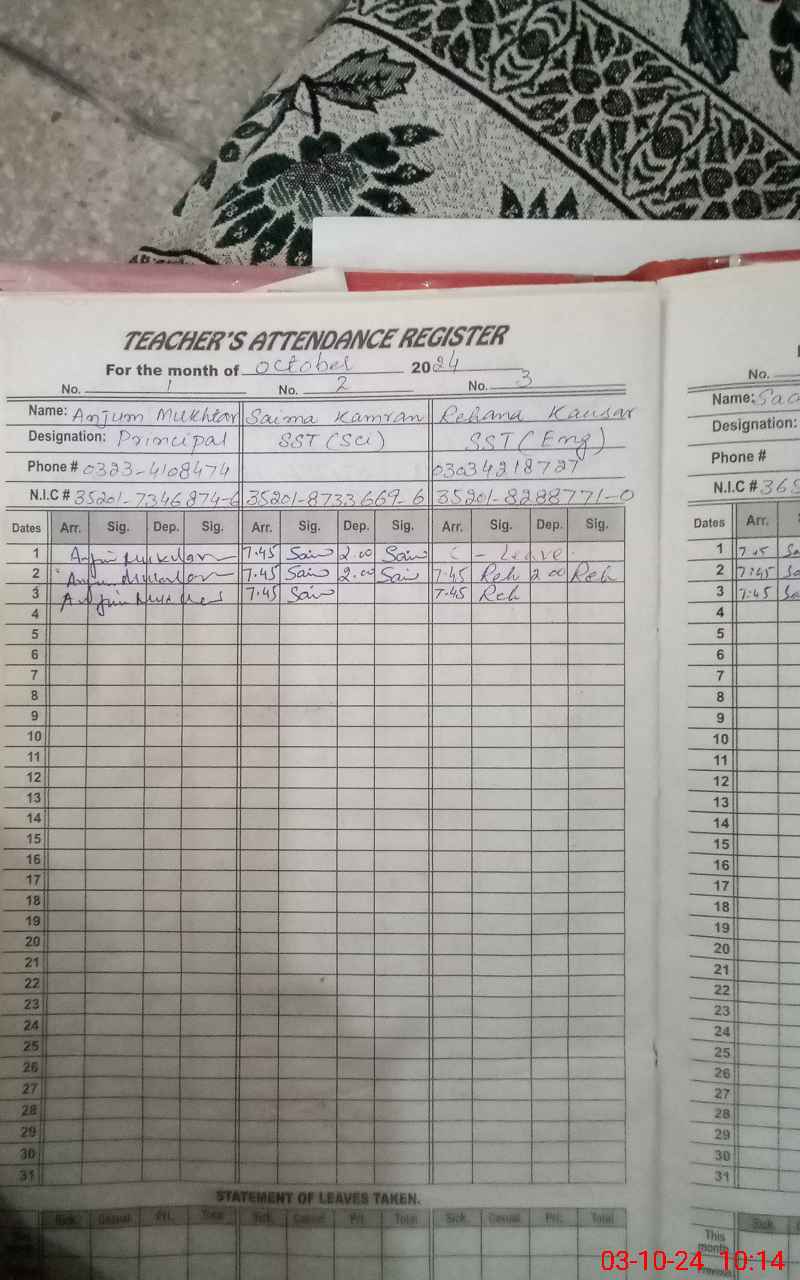 TEACHER'S ATTENDANCE REGISTER
For the month of October 2024
No. 1 No. 2 No. 3
Name: Anjum Mukhtar Saima Kamran Rehana Kausar
Designation: Principal SST (Sci) SST (Eng)
Phone # 0323-4108474 03034218727
N.I.C # 35201-7346874-6 35201-8733669-6 35201-8288771-0
Dates Arr. Sig. Dep. Sig. Arr. Sig. Dep. Sig. Arr. Sig. Dep. Sig.
1 7.45 Saim 2.00 Saim C - Leave
2 7.45 Saim 2.00 Saim 7.45 Reh 2.00 Reh
3 7.45 Saim 7.45 Reh
4
5
6
7
8
9
10
11
12
13
14
15
16
17
18
19
20
21
22
23
24
25
26
27
28
29
30
31
STATEMENT OF LEAVES TAKEN.
Sick. Casual. Pri. Total Sick. Casual Pri. Total Sick. Casual. Pri. Total
No.
Name:
Designation:
Phone #
N.I.C #
Dates Arr.
1 7.45
2 7:45
3 7:45
4
5
6
7
8
9
10
11
12
13
14
15
16
17
18
19
20
21
22
23
24
25
26
27
28
29
30
31
Sick.
This
month
Previous
03-10-24 10:14